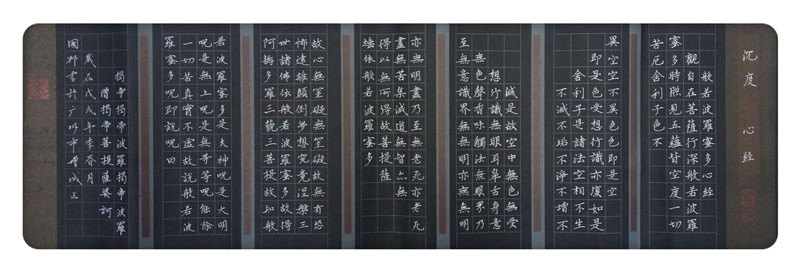 沉度 心經
般若波羅蜜多心經
觀自在菩薩行深般若波羅
蜜多時照見五蘊皆空度一切
苦厄舍利子色不
異空空不異色色即是空
即是色受想行識亦復如是
舍利子是諸法空相不生
不滅不垢不淨不增不
減是故空中無色無受
想行識無眼耳鼻舌身意
無色聲香味觸法無眼界乃
至無意識界無無明亦無無明
亦無明盡乃至無老死亦老死
盡無苦集滅道無智亦無
得以無所得故菩提薩
埵依般若波羅蜜多
故心無罣礙無罣礙故無有恐
怖遠離顛倒夢想究竟涅槃三
世諸佛依般若波羅蜜多故得
阿耨多羅三藐三菩提故知般
若波羅蜜多是大神呪是大明
呪是無上呪是無等等呪能除
一切苦真實不虛故說般若波
羅蜜多呪即說呪曰
揭帝揭帝波羅揭帝波羅
僧揭帝菩提薩婆訶
歲在戊戌年季春月
國邦書於